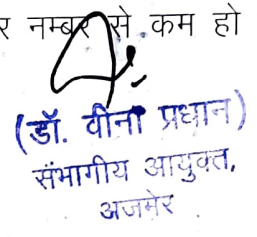 र नम्बर से कम हो
(डॉ. वीना प्रधान)
संभागीय आयुक्त,
अजमेर